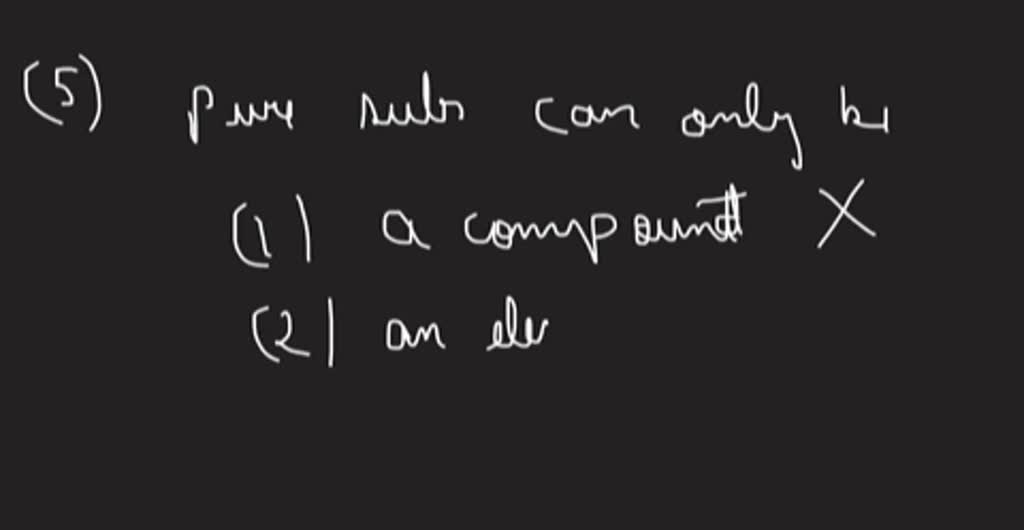 (5) pure subs can only be
(1) a compound X
(2) an ele